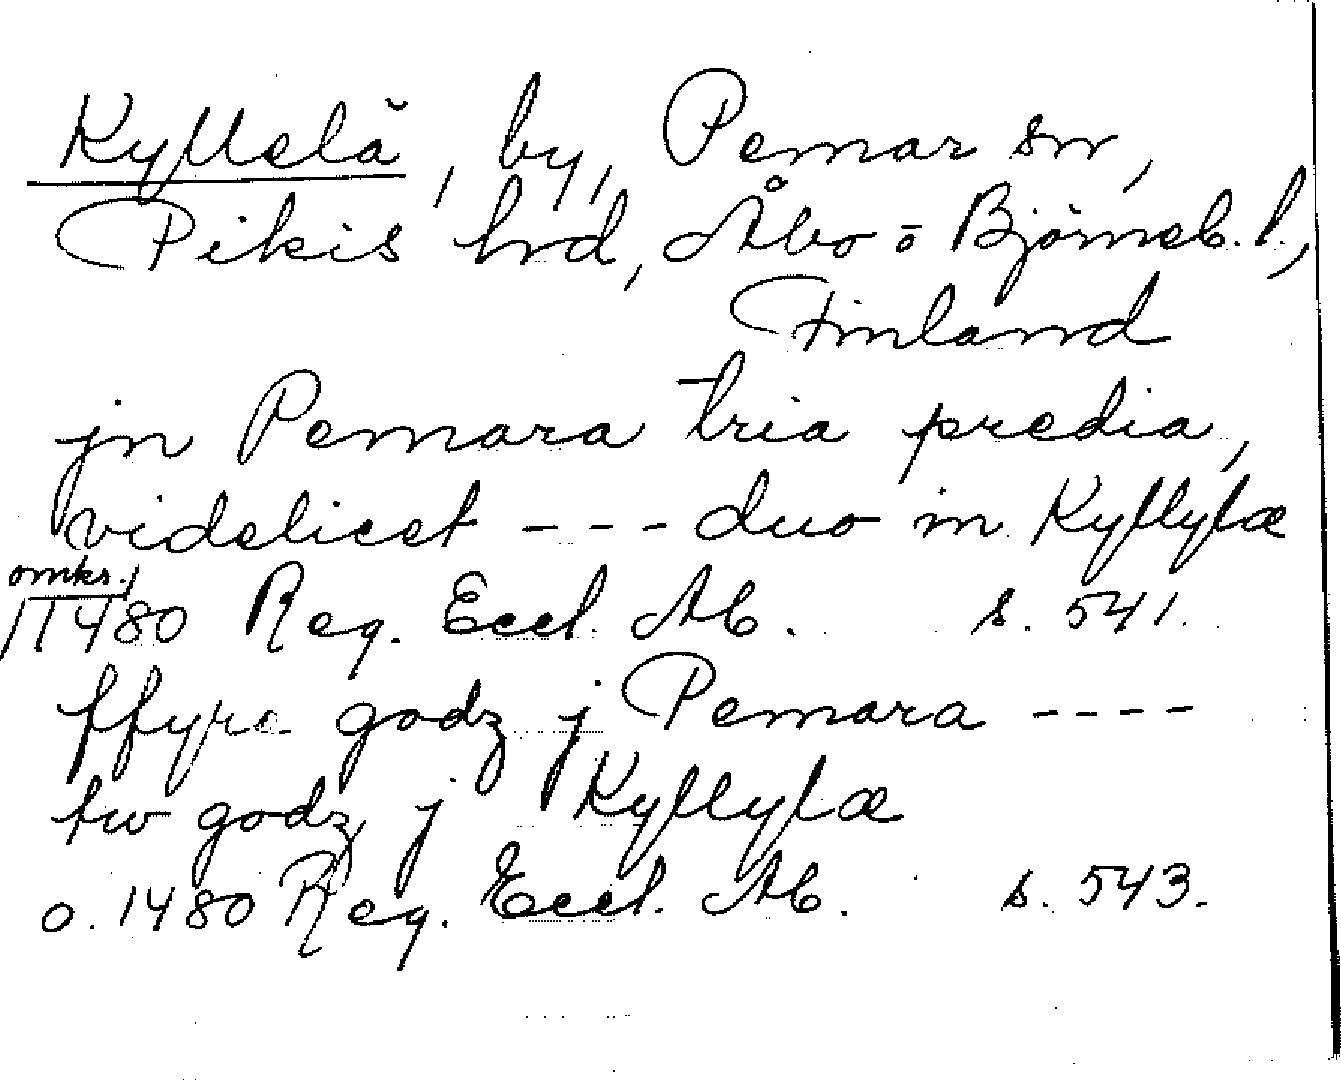 Kyllelä, by, Pemar sn,
Pikis hrd, Åbo-o Björneb. l,
Finland
jn Pemara tria predia,
videlicet --- duo in Kyllylæ
omkr.
1480 Reg. Eccl. Ab. s. 541.
ffyra godz j Pemara ----
tw godz j Kyllylæ
o. 1480 Reg. Eccl. Ab. s. 543.